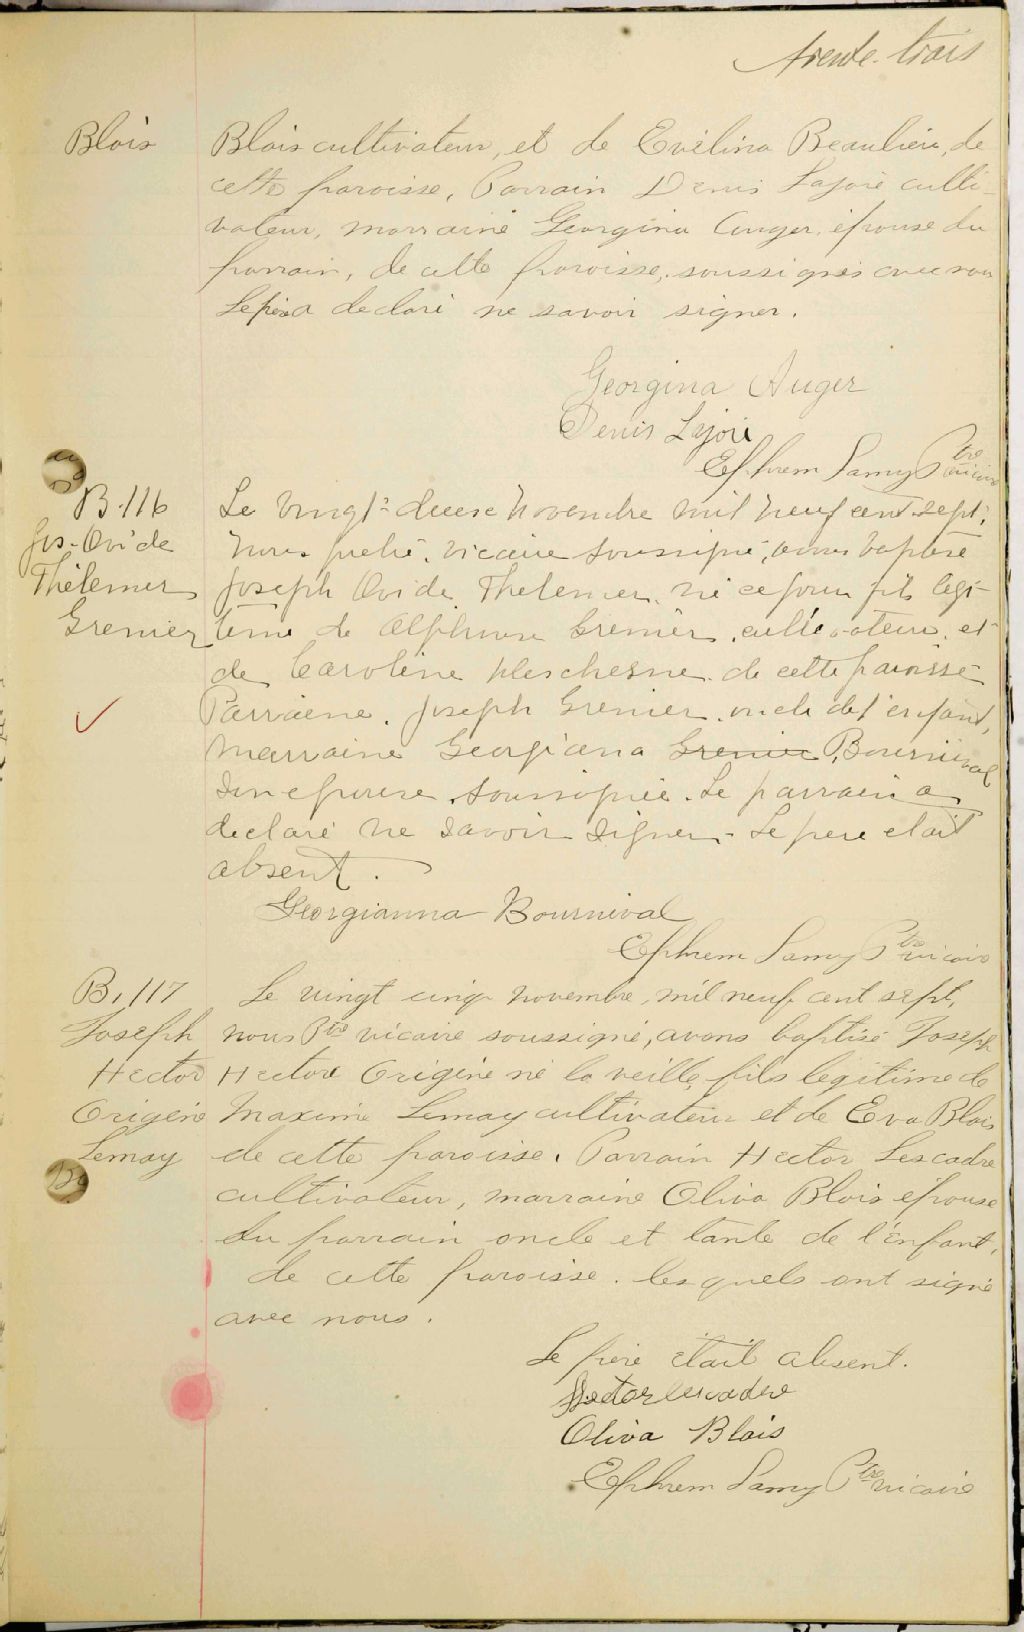 trente-trois
Blais
Blais cultivateur, et de Evélina Beaulieu, de
cette paroisse, Parrain Denis Lajoie culti-
vateur, marraine Georgina Auger, épouse du
parrain, de cette paroisse, soussignés avec nous
Le père a déclaré ne savoir signer.
Georgina Auger
Denis Lajoie
Ephrem Lamy Ptre vicaire
B. 116
Jos-Ovide
Thélemer
Grenier
Le vingt-deuxe novembre mil neuf cent-sept,
nous prêtre, vicaire soussigné, avons baptisé
Joseph Ovide Thelemer, né ce jour fils légi-
time de Alphonse Grenier, cultivateur, et
de Caroline de cette paroisse
Parraine, Joseph Grenier, oncle de l'enfant,
Marraine Georgiana Grenier Bournival
son épouse, soussignée. Le parrain a
déclaré ne savoir signer. Le père était
absent.
Georgianna Bournival
Ephrem Lamy Ptre vicaire
B. 117
Joseph
Hector
Origène
Lemay
Le vingt cinq novembre, mil neuf cent sept,
nous Ptre vicaire soussigné, avons baptisé Joseph
Hector Origène né la veille, fils légitime de
Maxime Lemay cultivateur et de Eva Blais
de cette paroisse. Parrain Hector Lescadre
cultivateur, marraine Oliva Blais épouse
du parrain oncle et tante de l'enfant,
de cette paroisse. lesquels ont signé
avec nous.
Le père était absent.
Hector Lescadre
Oliva Blais
Ephrem Lamy Ptre vicaire